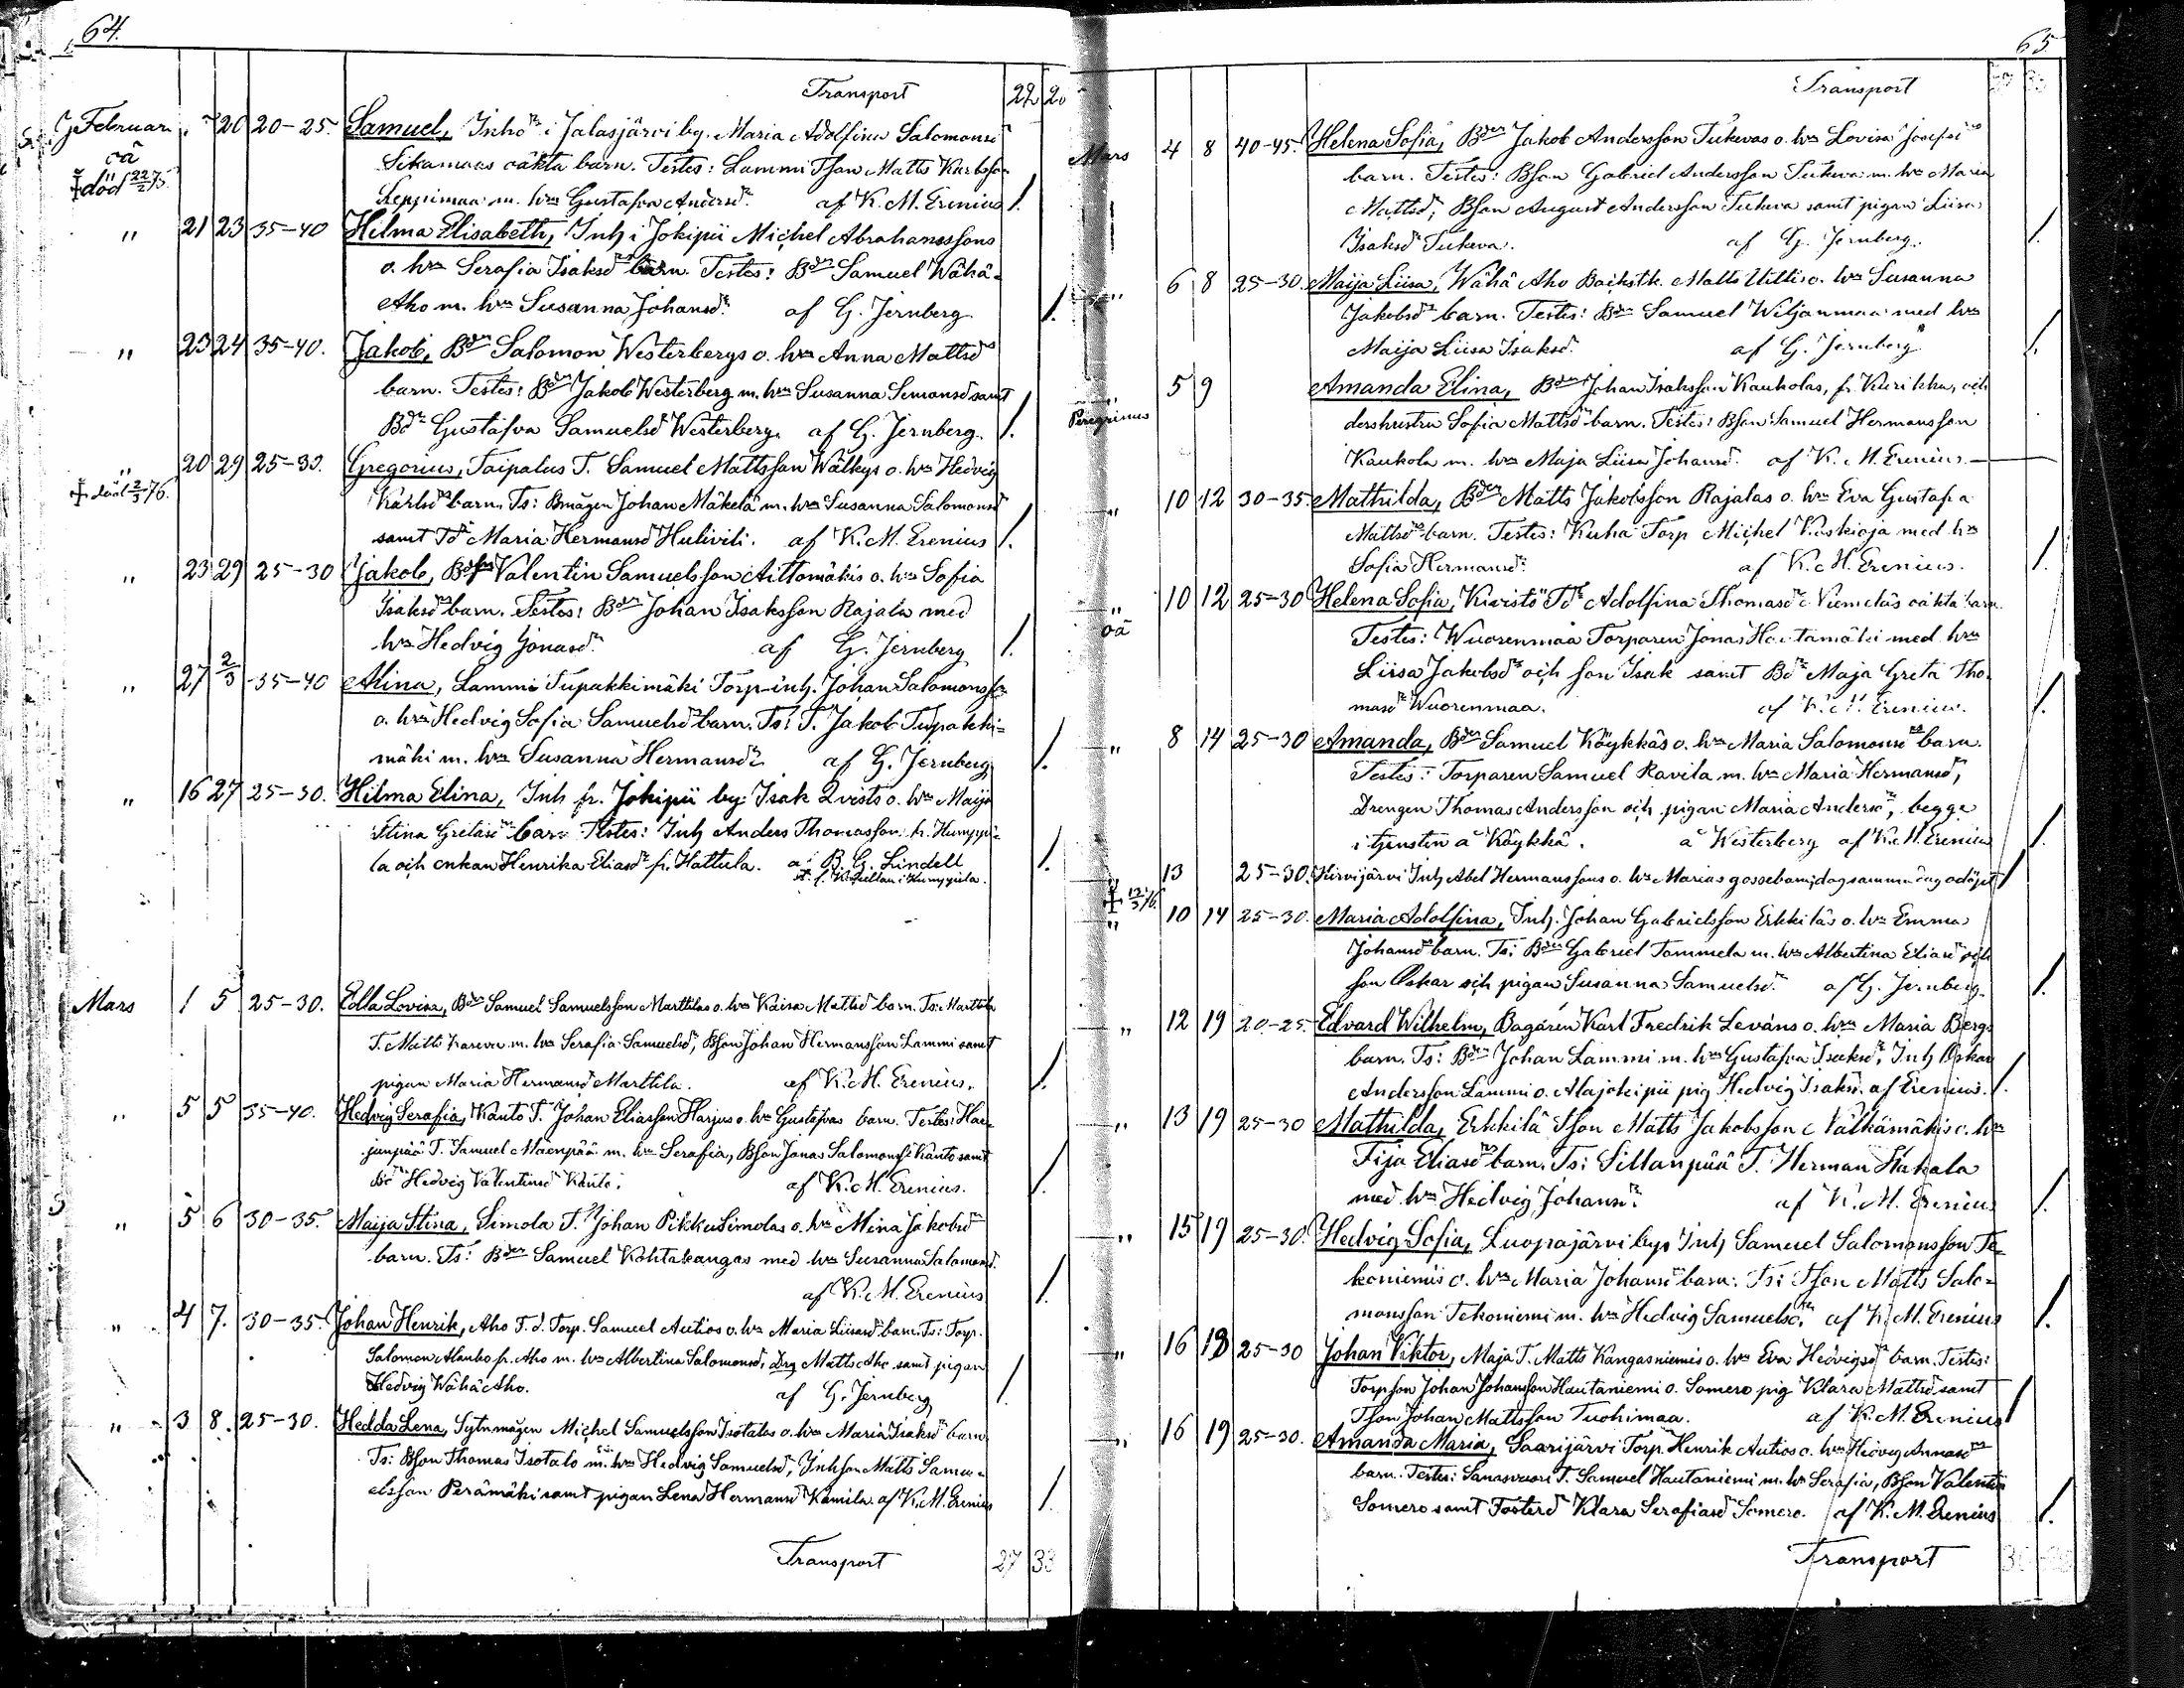 64.
Transport 22 20
Februari 20 20-25. Samuel, Inhd i Jalasjärvi by. Maria Adolfina Salomonsd
oä Sikamaas oäkta barn. Testes: Lammi Tson Matts Karlsson
död 22/2 75. Leppimaa m. hru Gustafva Andersd. af K. M. Erenius /.
" 21 23 35-40 Hilma Elisabeth, Inh i Jokipii Michel Abrahamssons
o. hru Serafia Isaksd barn. Testes: Bdn Samuel Wähä-
Aho m. hru Susanna Johansd. af G. Jernberg. /.
" 23 24 35-40. Jakob, Bdn Salomon Westerbergs o. hru Anna Mattsd
barn. Testes: Bdn Jakob Westerberg m. hru Susanna Simonsd samt
Bd Gustafva Samuelsd Westerberg. af G. Jernberg. /.
" 20 29 25-30. Gregorius, Taipalus T. Samuel Mattsson Wälkys o. hru Hedvig
död 2/3 76. Karlsd barn. Ts: Bmågen Johan Mäkelä m. hru Susanna Salomonsd
samt Td Maria Hermansd Hulivili. af K. M. Erenius /.
" 23 29 25-30 Jakob, Bdson Valentin Samuelsson Aittomäkis o. hru Sofia
Isaksd barn. Testes: Bdn Johan Isaksson Rajala med
hru Hedvig Jonasd. af G. Jernberg /.
" 27 2/3 35-40 Alina, Lammi Tupakkimäki Torp-inh. Johan Salomonsson
o. hru Hedvig Sofia Samuelsd barn. Ts: T. Jakob Tupakki-
mäki m. hru Susanna Hermansd. af G. Jernberg. /.
" 16 27 25-30. Hilma Elina, Inh fr. Jokipii by Isak Qvists o. hru Maija
Stina Gretasd barn Testes: Inh Anders Thomasson fr. Humppi-
la och enkan Henrika Eliasd fr. Hattula. af B. G. Lindell /.
st. f. Kapellan i Humppila.
Mars 1 5 25-30. Edla Lovisa, Bdn Samuel Samuelsson Marttilas o. hru Kaisa Mattsd barn. Ts: Marttila
T. Matts Kareva m. hru Serafia Samuelsd, Bson Johan Hermansson Lammi samt
pigan Maria Hermansd Marttila. af K. M. Erenius. /.
" 5 5 35-40. Hedvig Serafia, Kanto T. Johan Eliasson Harjus o. hru Gustafvas barn. Testes: Har-
junpää T. Samuel Mäenpää m. hru Serafia, Bson Jonas Salomonss Kanto samt
Bd Hedvig Valentinsd Kanto. af K. M. Erenius. /.
" 5 6 30-35. Maija Stina, Simola T. Johan PikkuSimolas o. hru Mina Jakobsd
barn. Ts: Bdn Samuel Kohtakangas med hru Susanna Salomonsd.
af K. M. Erenius /.
" 4 7. 30-35. Johan Henrik, Aho T. d. Torp. Samuel Autios o. hru Maria Liisasd barn. Ts: Torp.
Salomon Alanko fr. Aho m. hru Albertina Salomonsd, Drg Matts Aho samt pigan
Hedvig Wähä Aho. af G. Jernberg /
" 3 8. 25-30. Hedda Lena, Sytnmågen Michel Samuelsson Isotalos o. hru Maria Isaksd barn
Ts: Bson Thomas Isotalo m. hru Hedvig Samuelsd, Inhson Matts Samu-
elsson Perämäki samt pigan Lena Hermansd Kamila af K. M. Erenius /.
Transport 27 33
65.
Transport
Mars 4 8 40-45. Helena Sofia, Bdn Jakob Andersson Tukevas o. hru Lovisa Josefsd
barn. Testes: Bson Gabriel Andersson Tukeva m. hru Maria
Mattsd, Bson August Andersson Tukeva samt pigan Liisa
Isaksd Tukeva. af G. Jernberg. /.
" 6 8 25-30. Maija Liisa, Wähä Aho Backstk. Matts Uittis o. hru Susanna
Jakobsd barn. Testes: Bdn Samuel Wiljanmaa med hru
Maija Liisa Isaksd. af G. Jernberg /.
" 5 9 Amanda Elina, Bdn Johan Isaksson Kauholas, fr. Kurikka, och
Peregrinus dess hustru Sofia Mattsd barn. Testes: Bson Samuel Hermansson
Kauhola m. hru Maja Liisa Johansd. af K. M. Erenius.
" 10 12 30-35. Mathilda, Bdn Matts Jakobsson Rajalas o. hru Eva Gustafva
Mattsd barn. Testes: Kuha Torp Michel Koskioja med hru
Sofia Hermansd. af K. M. Erenius. /.
" 10 12 25-30 Helena Sofia, Kivistö Td Adolfina Thomasd Niemeläs oäkta barn.
oä Testes: Wuorenmaa Torparen Jonas Hautamäki med hru
Liisa Jakobsd och son Isak samt Bd Maja Greta Tho-
masd Wuorenmaa. af K. M. Erenius. /.
" 8 14 25-30 Amanda, Bdn Samuel Köykkäs o. hru Maria Salomonsd barn.
Testes: Torparen Samuel Ravila m. hru Maria Hermansd,
Drengen Thomas Andersson och pigan Maria Andersd, begge
i tjensten å Köykkä. å Westerberg af K. M. Erenius /.
" 13 25-30. Hirvijärvi Inh Abel Hermanssons o. hru Marias gossebarn, dog samma dag odöpt /
12/3 76. 10 14 25-30. Maria Adolfina, Inh. Johan Gabrielsson Erkkiläs o. hru Emma
Johansd barn. Ts: Bdn Gabriel Tammela m. hru Albertina Eliasd och
son Oskar och pigan Susanna Samuelsd. af G. Jernberg. /.
" 12 19 20-25. Edvard Wilhelm, Bagaren Karl Fredrik Leväns o. hru Maria Bergs
barn. Ts: Bdn Johan Lammi m. hru Gustafva Isaksd, Inh Oskar
Andersson Lammi o. Alajokipii pig Hedvig Isaksd. af Erenius. /.
" 13 19 25-30 Mathilda, Erkkilä Tson Matts Jakobsson Välkämäkis o. hru
Fija Eliasd barn. Ts: Sillanpää T. Herman Hakala
med hru Hedvig Johansd. af K. M. Erenius /.
" 15 19 25-30. Hedvig Sofia, Luopajärvi bys Inh Samuel Salomonsson Te-
koniemis o. hru Maria Johansd barn. Ts: Tson Matts Salo-
monsson Tekoniemi m. hru Hedvig Samuelsd, af K. M. Erenius /.
" 16 19 25-30 Johan Viktor, Maja T. Matts Kangasniemis o. hru Eva Hedvigsd barn. Testes:
Torpson Johan Johansson Hautaniemi o. Somero pig Klara Mattsd samt
Tson Johan Mattsson Tuohimaa. af K. M. Erenius /
" 16 19 25-30. Amanda Maria, Saarijärvi Torp. Henrik Autios o. hru Hedvig Annasd
barn. Testes: Sanasvuori T. Samuel Hautaniemi m. hru Serafia, Bson Valentin
Somero samt Fosterd Klara Serafiasd Somero. af K. M. Erenius /.
Transport